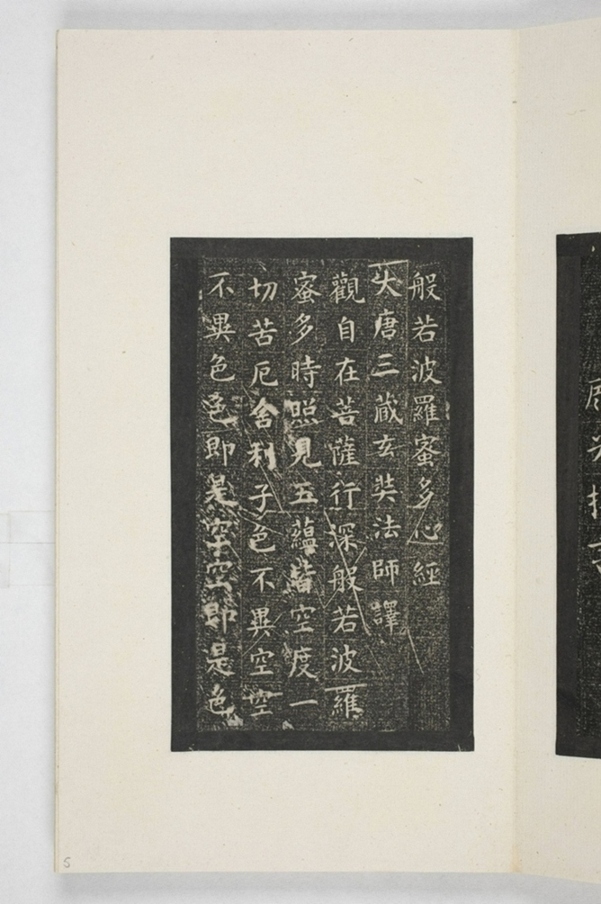 般若波羅蜜多心經
大唐三藏玄奘法師譯
觀自在菩薩行深般若波羅
蜜多時照見五蘊皆空度一
切苦厄舍利子色不異空空
不異色色即是空空即是色
5